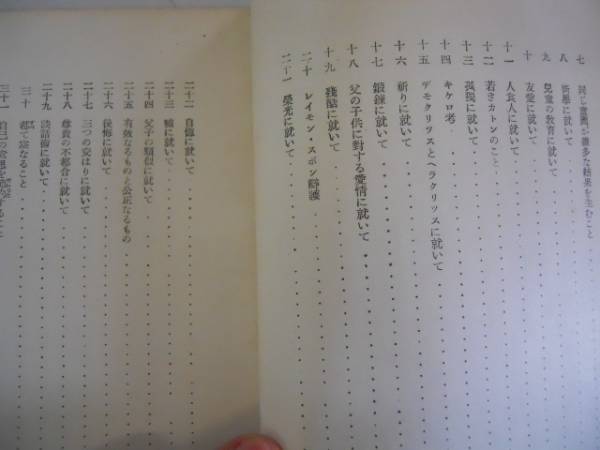 七 同じ意図が雑多な結果を生むこと
八 衒學に就いて
九 兒童の教育に就いて
十 友愛に就いて
十一 人食人に就いて
十二 若きカトンのこと
十三 孤獨に就いて
十四 キケロ考
十五 デモクリツスとヘラクリツスに就いて
十六 祈りに就いて
十七 鍛錬に就いて
十八 父の子供に對する愛情に就いて
十九 殘酷に就いて
二十 レイモン・スボン辯護
二十一 榮光に就いて
二十二 自惚に就いて
二十三 嘘に就いて
二十四 父子の類似に就いて
二十五 有效なるものと公正なるもの
二十六 後悔に就いて
二十七 三つの交はりに就いて
二十八 尊貴の不都合に就いて
二十九 談話術に就いて
三十 都て空なること
三十一